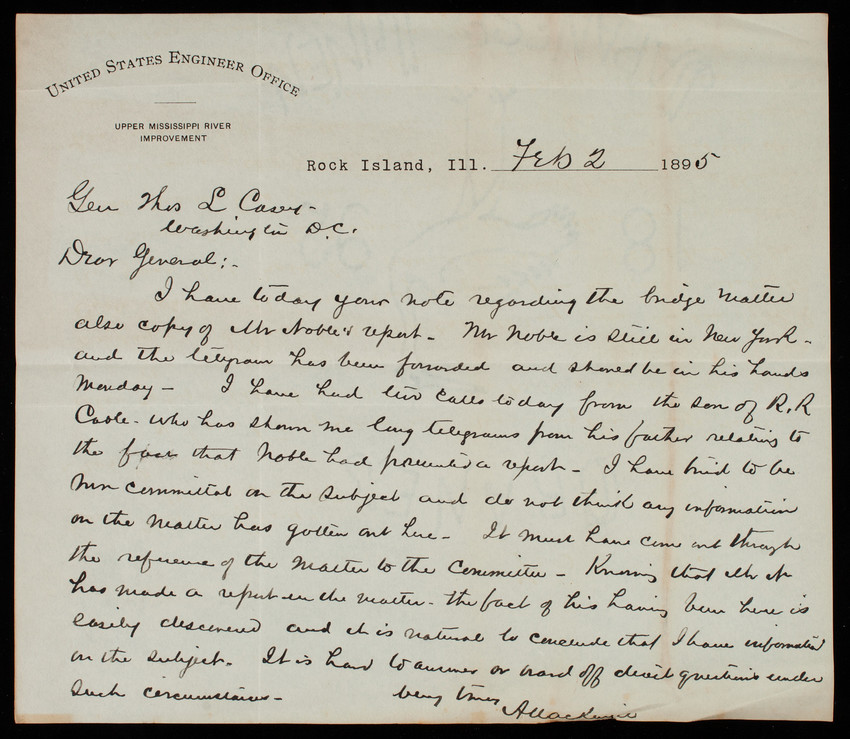 UNITED STATES ENGINEER OFFICE
UPPER MISSISSIPPI RIVER
IMPROVEMENT
Rock Island, Ill. Feb 2 1895
Gen Thos L Casey-
Washington D.C.
Dear General:-
I have today your note regarding the bridge matter
also copy of Mr Noble's report- Mr Noble is still in New York-
and the telegram has been forwarded and should be in his hands
Monday- I have had two calls today from the son of R.R
Cable- who has shown me long telegrams from his father relating to
the fact that Noble had presented a report- I have tried to be
non committal on the subject and do not think any information
on the matter has gotten out here- It must have come out through
the reference of the matter to the Committee- Knowing that Mr N
has made a report in the matter- the fact of his having been here is
easily discovered and it is natural to conclude that I have information
on the subject- It is hard to answer or ward off direct questions under
such circumstances-
Very truly
A Mackenzie